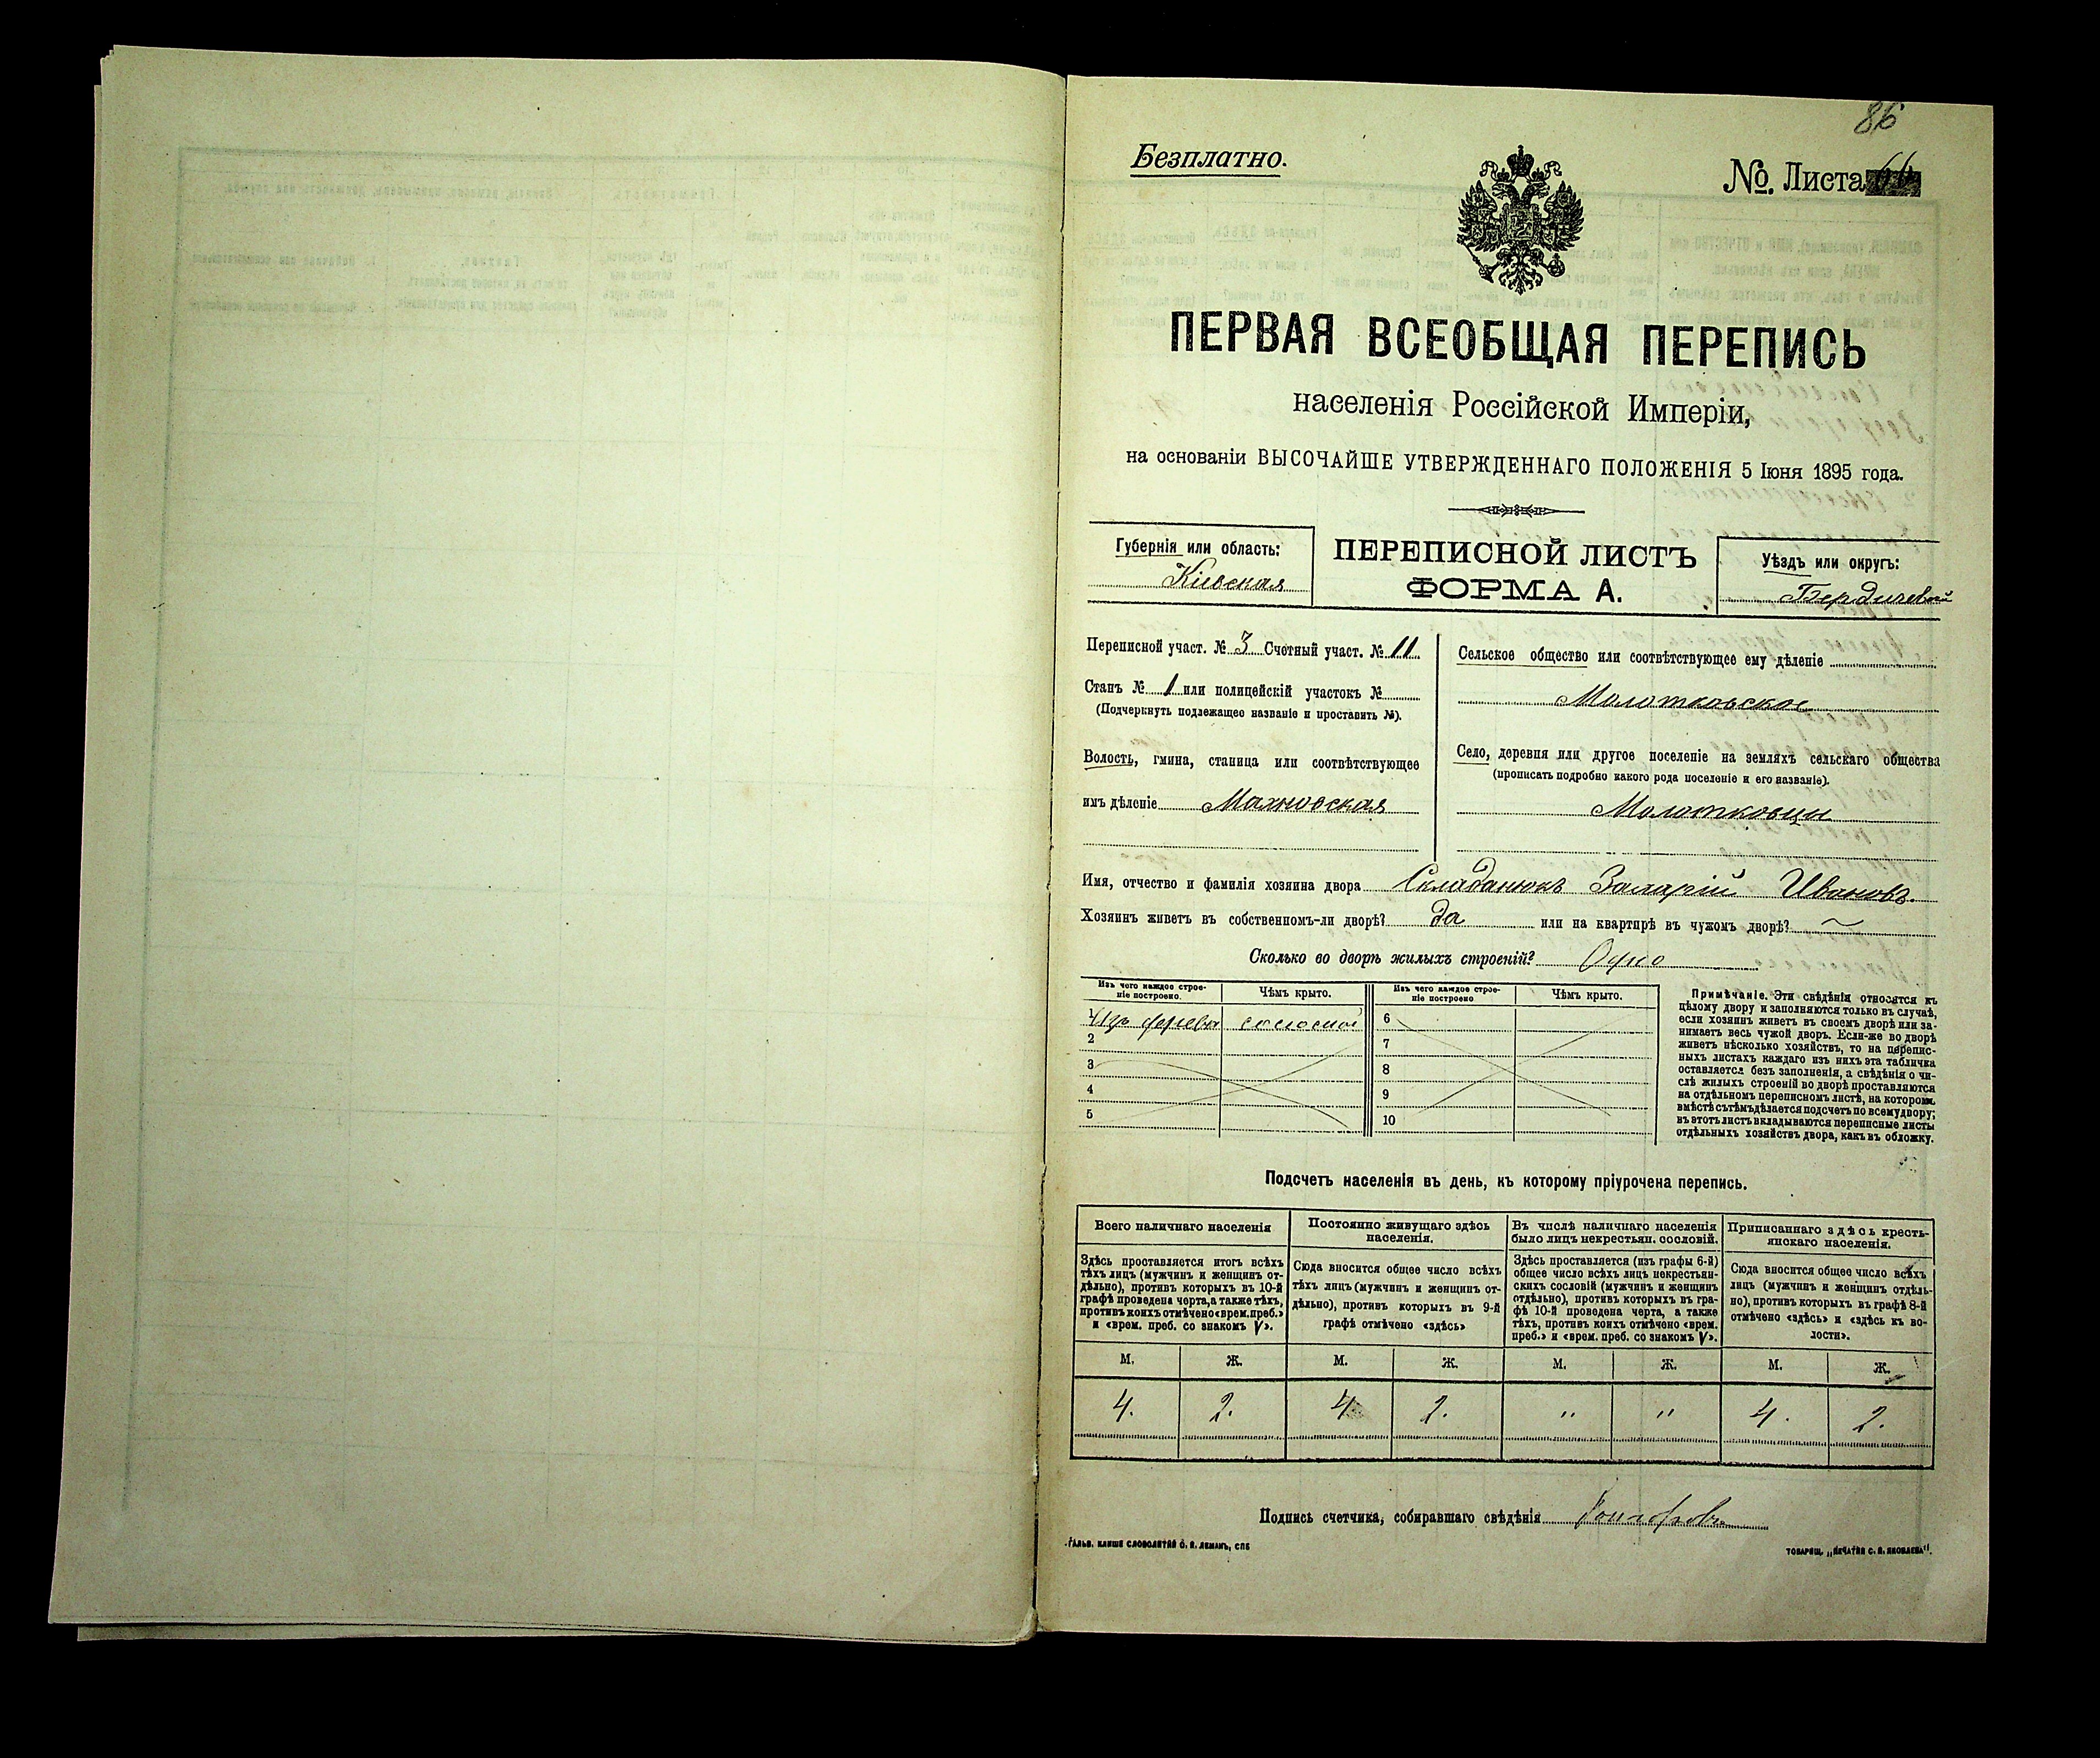 86
Безплатно.
№. Листа 66
ПЕРВАЯ ВСЕОБЩАЯ ПЕРЕПИСЬ
населенія Россійской Имперіи,
на основаніи ВЫСОЧАЙШЕ УТВЕРЖДЕННАГО ПОЛОЖЕНІЯ 5 Іюня 1895 года.
Губернія или область:
Кіевская
ПЕРЕПИСНОЙ ЛИСТЪ
ФОРМА А.
Уѣздъ или округъ:
Бердичевскій
Переписной участ. № 3 Счетный участ. № 11
Станъ № 1 или полицейскій участокъ №
(Подчеркнуть подлежащее названіе и проставить №).
Волость, гмина, станица или соотвѣтствующее
имъ дѣленіе Махновская
Сельское общество или соотвѣтствующее ему дѣленіе
Молотковское
Село, деревня или другое поселеніе на земляхъ сельскаго общества
(прописать подробно какого рода поселеніе и его названіе).
Молотковцы
Имя, отчество и фамилія хозяина двора Складанюкъ Захарій Ивановъ.
Хозяинъ живетъ въ собственномъ-ли дворѣ? да или на квартирѣ въ чужомъ дворѣ? ~
Сколько во дворѣ жилыхъ строеній? Одно
Изъ чего каждое строе-
ніе построено.
Чѣмъ крыто.
Изъ чего каждое строе-
ніе построено
Чѣмъ крыто.
1 Изъ дерева соломой
2
3
4
5
6
7
8
9
10
Примѣчаніе. Эти свѣдѣнія относятся къ
цѣлому двору и заполняются только въ случаѣ,
если хозяинъ живетъ въ своемъ дворѣ или за-
нимаетъ весь чужой дворъ. Если-же во дворѣ
живетъ нѣсколько хозяйствъ, то на перепис-
ныхъ листахъ каждаго изъ нихъ эта табличка
оставляется безъ заполненія, а свѣдѣнія о чи-
слѣ жилыхъ строеній во дворѣ проставляются
на отдѣльномъ переписномъ листѣ, на которомъ
вмѣстѣ съ тѣмъ дѣлается подсчетъ по всему двору;
въ этотъ листъ вкладываются переписные листы
отдѣльныхъ хозяйствъ двора, какъ въ обложку.
Подсчетъ населенія въ день, къ которому пріурочена перепись.
Всего наличнаго населенія
Здѣсь проставляется итогъ всѣхъ
тѣхъ лицъ (мужчинъ и женщинъ от-
дѣльно), противъ которыхъ въ 10-й
графѣ проведена черта, а также тѣхъ,
противъ коихъ отмѣчено «врем. преб.»
и «врем. преб. со знакомъ V».
Постоянно живущаго здѣсь
населенія.
Сюда вносится общее число всѣхъ
тѣхъ лицъ (мужчинъ и женщинъ от-
дѣльно), противъ которыхъ въ 9-й
графѣ отмѣчено «здѣсь»
Въ числѣ наличнаго населенія
было лицъ некрестьян. сословій.
Здѣсь проставляется (изъ графы 6-й)
общее число всѣхъ лицъ некрестьян-
скихъ сословій (мужчинъ и женщинъ
отдѣльно), противъ которыхъ въ гра-
фѣ 10-й проведена черта, а также
тѣхъ, противъ коихъ отмѣчено «врем.
преб.» и «врем. преб. со знакомъ V».
Приписаннаго здѣсь кресть-
янскаго населенія.
Сюда вносится общее число всѣхъ
лицъ (мужчинъ и женщинъ отдѣль-
но), противъ которыхъ въ графѣ 8-й
отмѣчено «здѣсь» и «здѣсь къ во-
лости».
М. Ж. М. Ж. М. Ж. М. Ж.
4. 2. 4. 2. " " 4. 2.
Подпись счетчика, собиравшаго свѣдѣнія
ГАЛЬВ. КЛИШЕ СЛОВОЛИТНИ О. И. ЛЕМАНЪ, СПБ
ТОВАРИЩ. „ПЕЧАТНЯ С. П. ЯКОВЛЕВА".